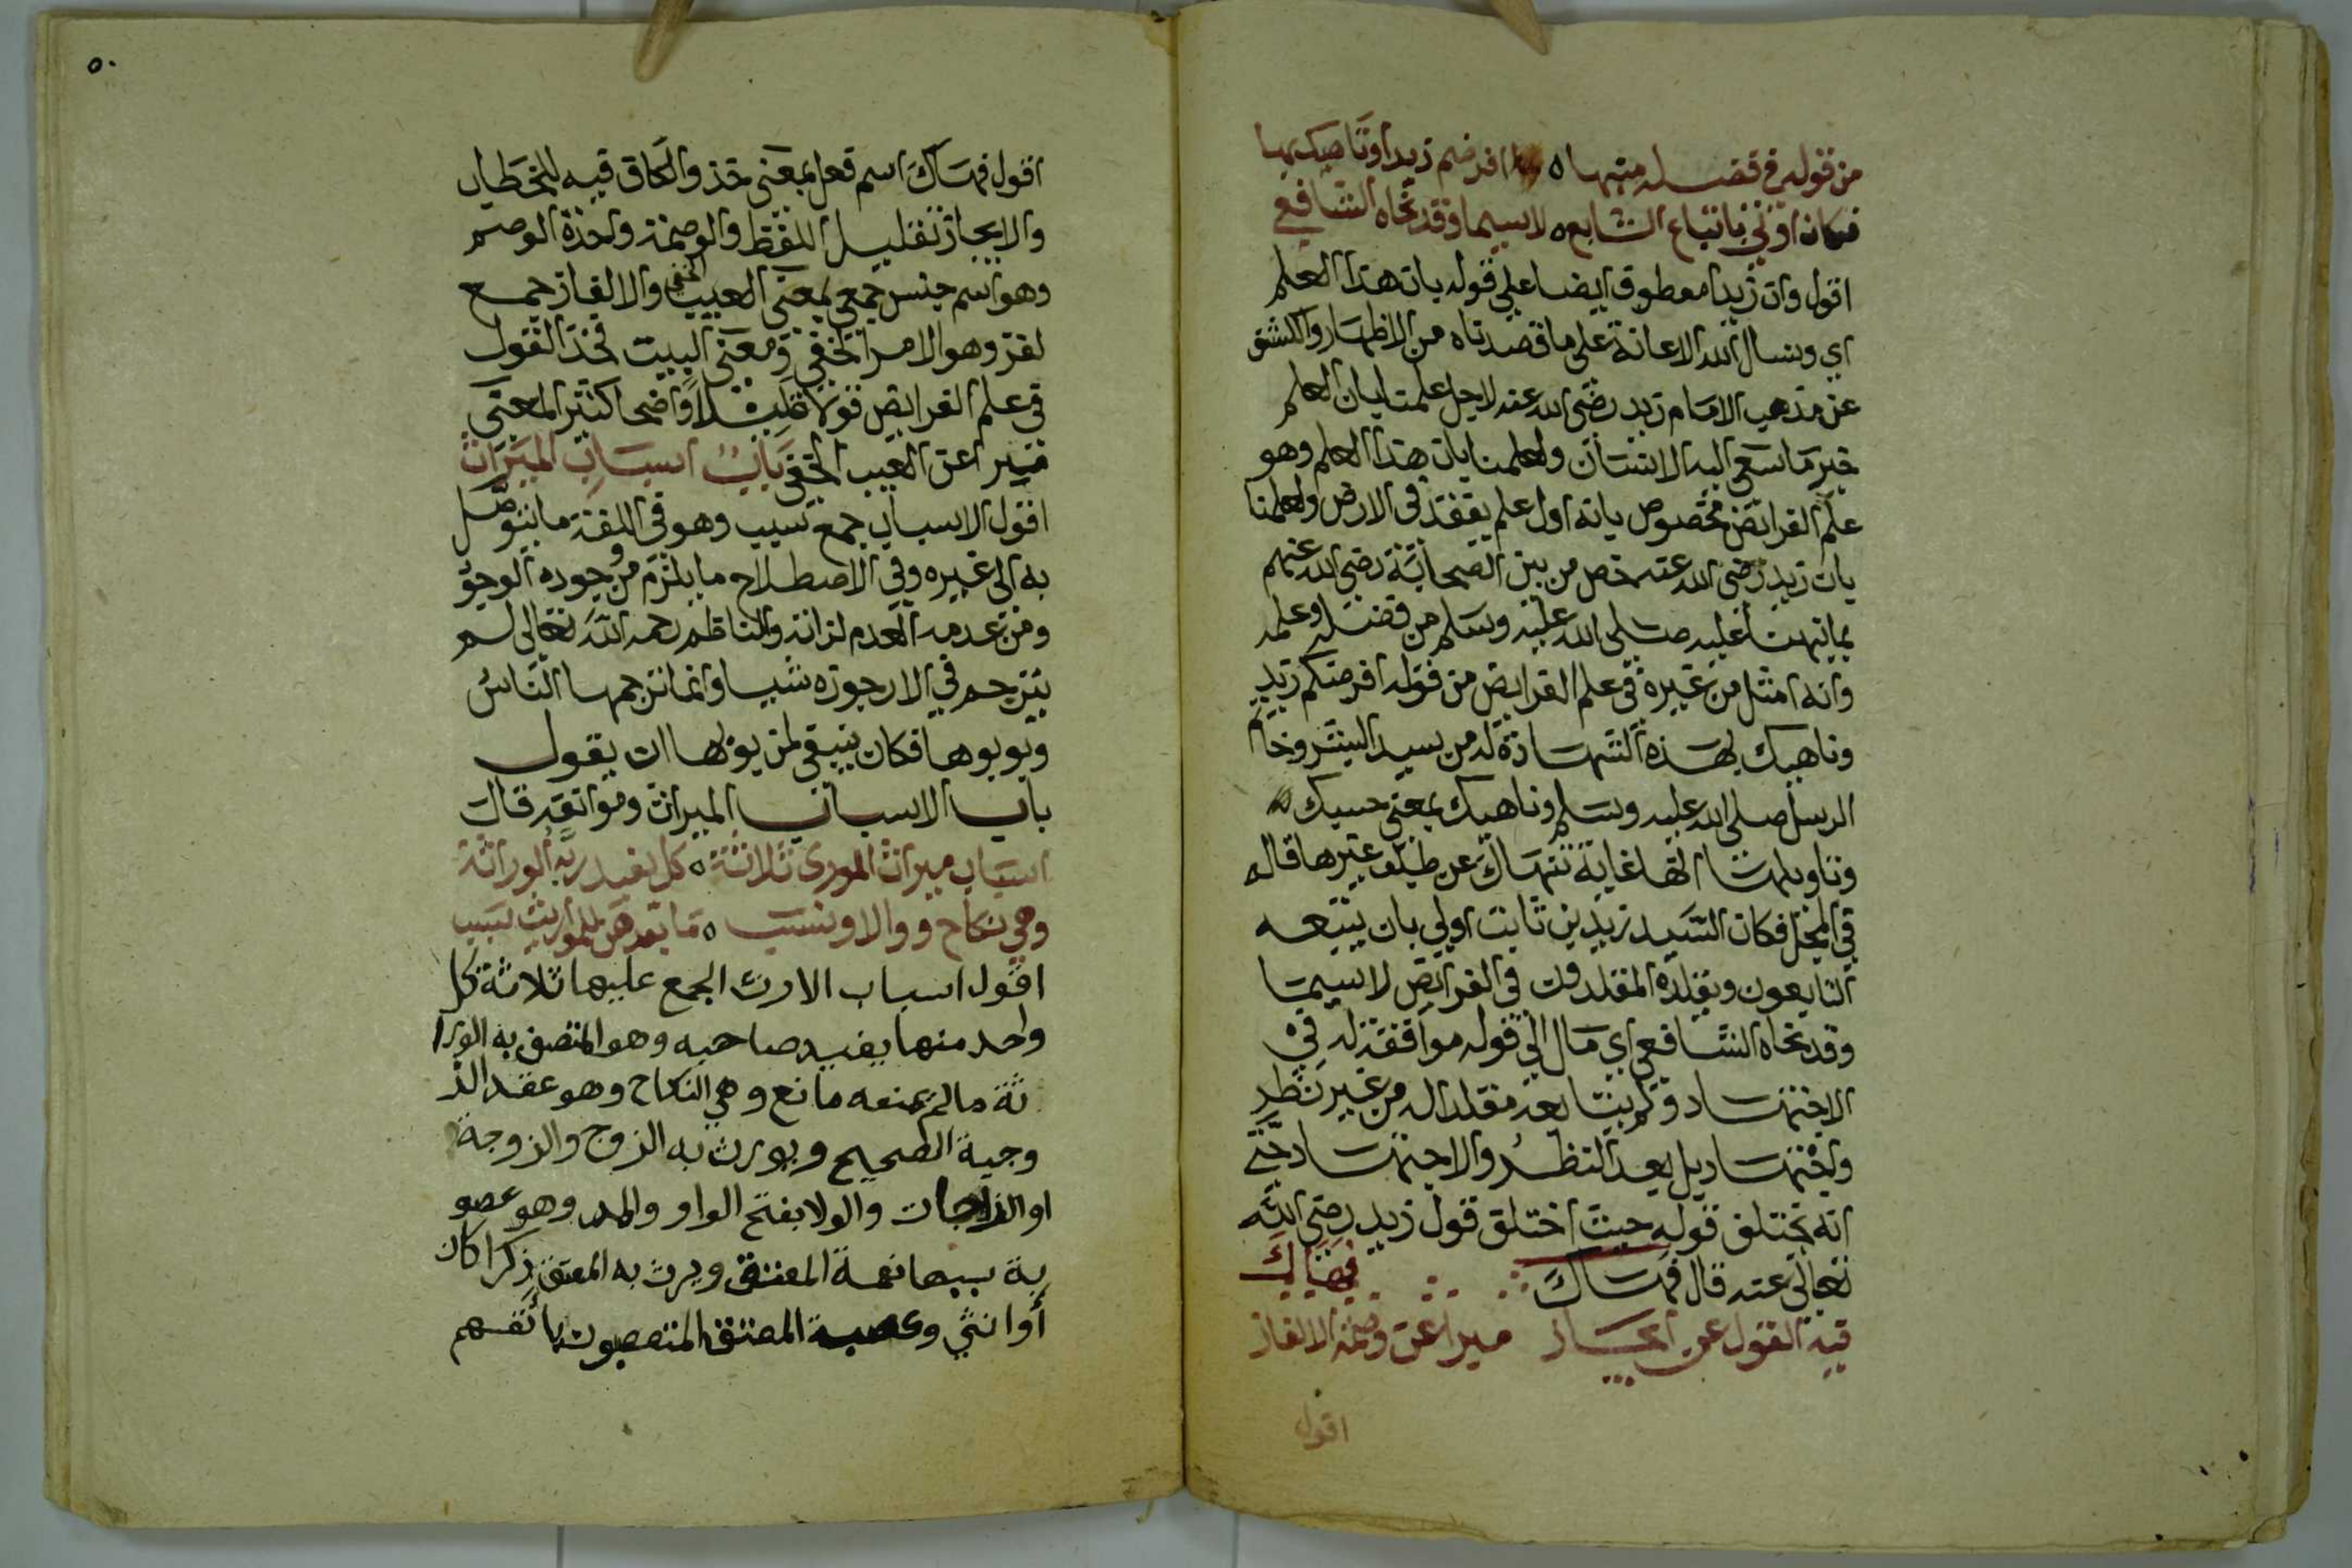 من قوله في فضله منبها ٥ افرضكم زيد اوناهيك بها
فكان اولي باتباع التابع ٥ لاسيما وقد نحاه الشافعي
اقول وان زيدا معطوف ايضا علي قوله بان هذا العلم
اي ونسال الله الاعانة على ما قصدناه من الاظهار والكشف
عن مذهب الامام زيد رضي الله عنه لاجل علمنا بان العلم
خير ما سعي اليه الانسان ولعلمنا بان هذا العلم وهو
علم الفرايض مخصوص بانه اول علم يفقد في الارض ولعلمنا
بان زيد رضي الله عنه خص من بين الصحابة رضي الله عنهم
بما نبهنا عليه صلى الله عليه وسلم من فضله وعلمه
وانه امثل من غيره في علم الفرايض من قوله افرضكم زيد
وناهيك بهذه الشهادة له من سيد البشر وخاتم
الرسل صلى الله عليه وسلم وناهيك بمعنى حسبك
وتاويلها انها غاية تنهاك عن طلب غيرها قاله
في المجمل فكان السيد زيد بن ثابت اولي بان يتبعه
التابعون ويقلده المقلدون في الفرايض لاسيما
وقد نحاه الشافعي اي مال الي قوله موافقة له في
الاجتهاد ولم يتابعه مقلدا له من غير نظر
واجتهاد بل بعد النظر والاجتهاد حتي
انه تختلف قوله حيث اختلف قول زيد رضي الله
تعالي عنه قال فهاك فهاك
فيه القول عن ايجاز مبرا عن وصمة الالغاز
اقول
٥٠
اقول فهاك اسم فعل بمعنى خذ والكاف فيه للخطاب
والايجاز تقليل اللفظ والوصمة واحدة الوصم
وهو اسم جنس جمعي بمعنى العيب الخفي والالغاز جمع
لغز وهو الامر الخفي ومعنى البيت فخذ القول
في علم الفرايض قولا قليلا واضحا كثير المعنى
مبرا عن العيب الخفي باب اسباب الميراث
اقول الاسباب جمع سبب وهو في اللغة ما يتوصل
به الى غيره وفي الاصطلاح ما يلزم من وجوده الوجود
ومن عدمه العدم لذاته والناظم رحمه الله تعالى لم
يترجم في الارجوزه شيا وانما ترجمها الناس
وبوبوها فكان ينبغي لمن بوبها ان يقول
باب الاسباب الميراث وموانعه قال
اسباب ميراث الورى ثلاثة ٥ كل يفيد ربه الوراثة
وهي نكاح وولا ونسب ٥ ما بعدهن للمواريث سبب
اقول اسباب الارث المجمع عليها ثلاثة كل
واحد منها يفيد صاحبه وهو المتصف به الورا
ثة مالم يمنعه مانع وهي النكاح وهو عقد الز
وجية الصحيح ويورث به الزوج والزوجة
او الزوجات والولا بفتح الواو والمد وهو عصو
بة سببها نعمة المعتق ويرث به المعتق ذكرا كان
أو انثي وعصبة المعتق المتعصبون بانفسهم